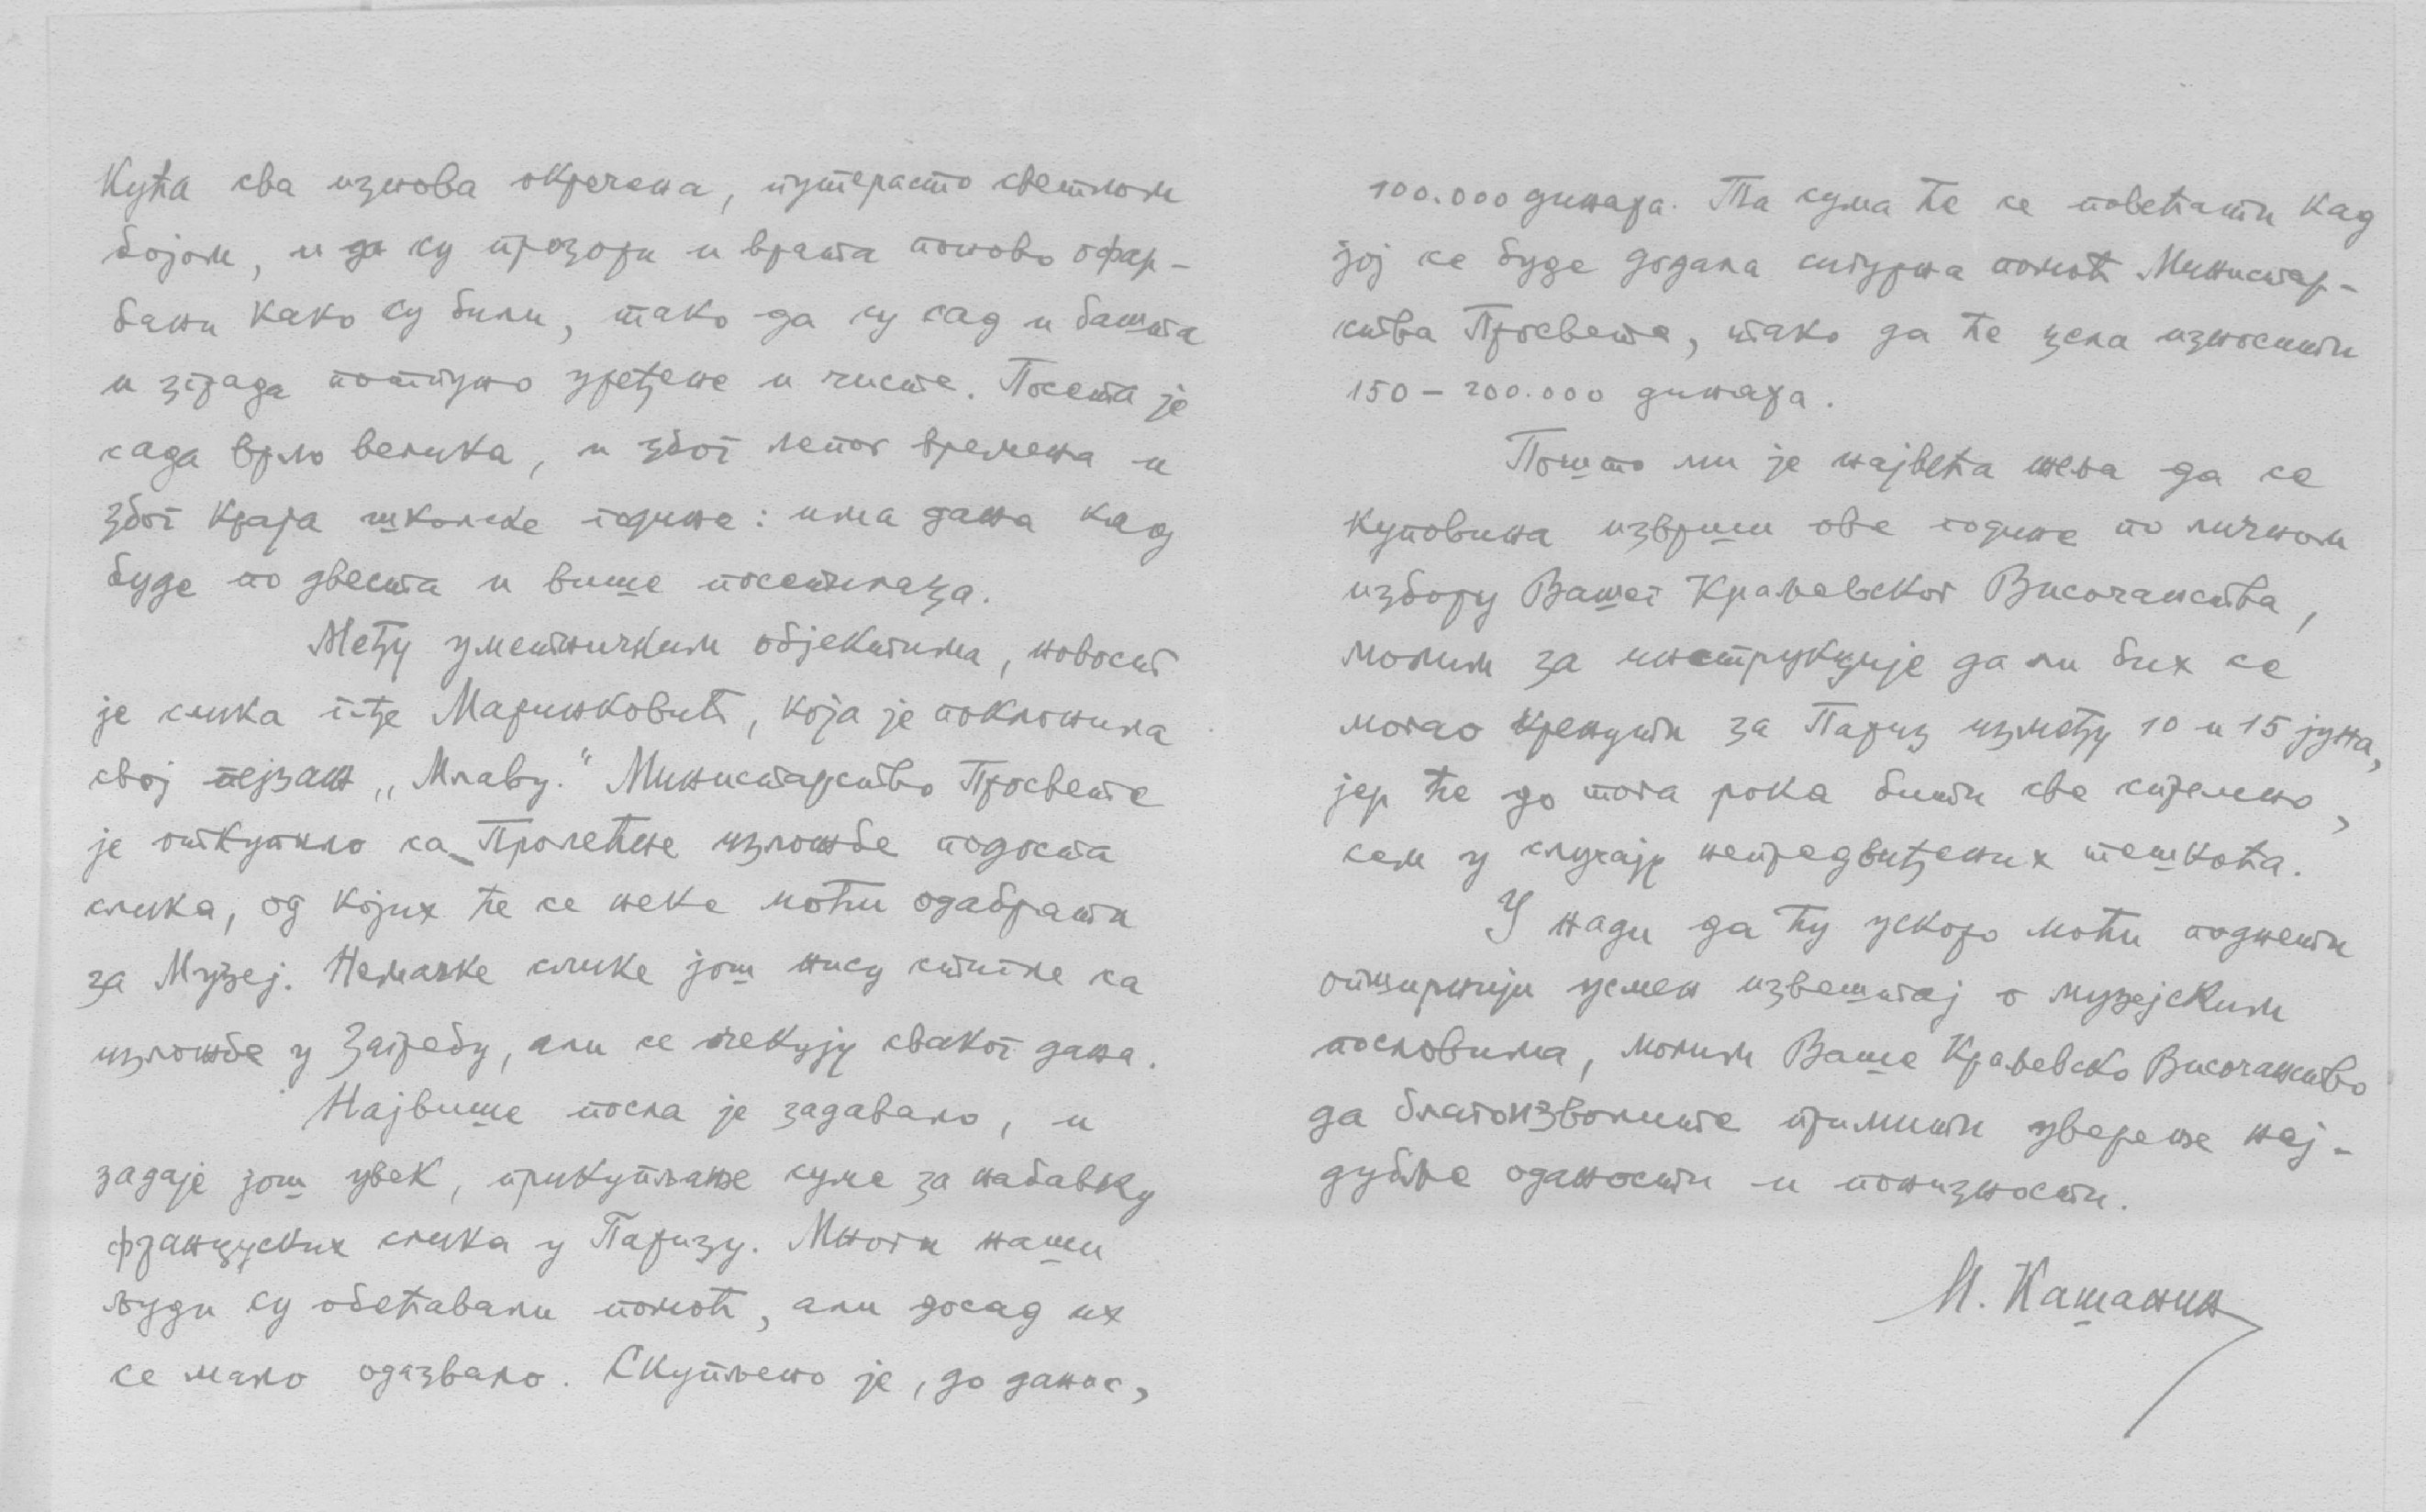 Кућа сва изнова окречена, путерасто светлом
бојом, и да су прозори и врата поново офар-
бани како су били, тако да су сад и башта
и зграда потпуно уређене и чисте. Посета је
сада врло велика, и због лепог времена и
због краја школске године: има дана кад
буде по двеста и више посетилаца.
Међу уметничким објектима, новост
је слика г-ђе Маринковић, која је поклонила
свој пејзаж „Млаву.“ Министарство Просвете
је откупило са Пролећне изложбе подоста
слика, од којих ће се неке моћи одабрати
за Музеј. Немачке слике још нису стигле са
изложбе у Загребу, али се очекују сваког дана.
Највише посла је задавало, и
задаје још увек, прикупљање суме за набавку
француских слика у Паризу. Многи наши
људи су обећавали помоћ, али досад их
се мало одазвало. Скупљено је, до данас,
100.000 динара. Та сума ће се повећати кад
јој се буде додала сигурна помоћ Министар-
ства Просвете, тако да ће цела износити
150 – 200.000 динара.
Пошто ми је највећа жеља да се
куповина изврши ове године по личном
избору Вашег Краљевског Височанства,
молим за инструкције да ли бих се
могао кренути за Париз између 10 и 15 јуна,
јер ће до тога рока бити све спремно,
сем у случају непредвиђених тешкоћа.
У нади да ћу ускоро моћи поднети
опширнији усмен извештај о музејским
пословима, молим Ваше Краљевско Височанство
да благоизволите примити уверење нај-
дубље оданости и понизности.
М. Кашанин